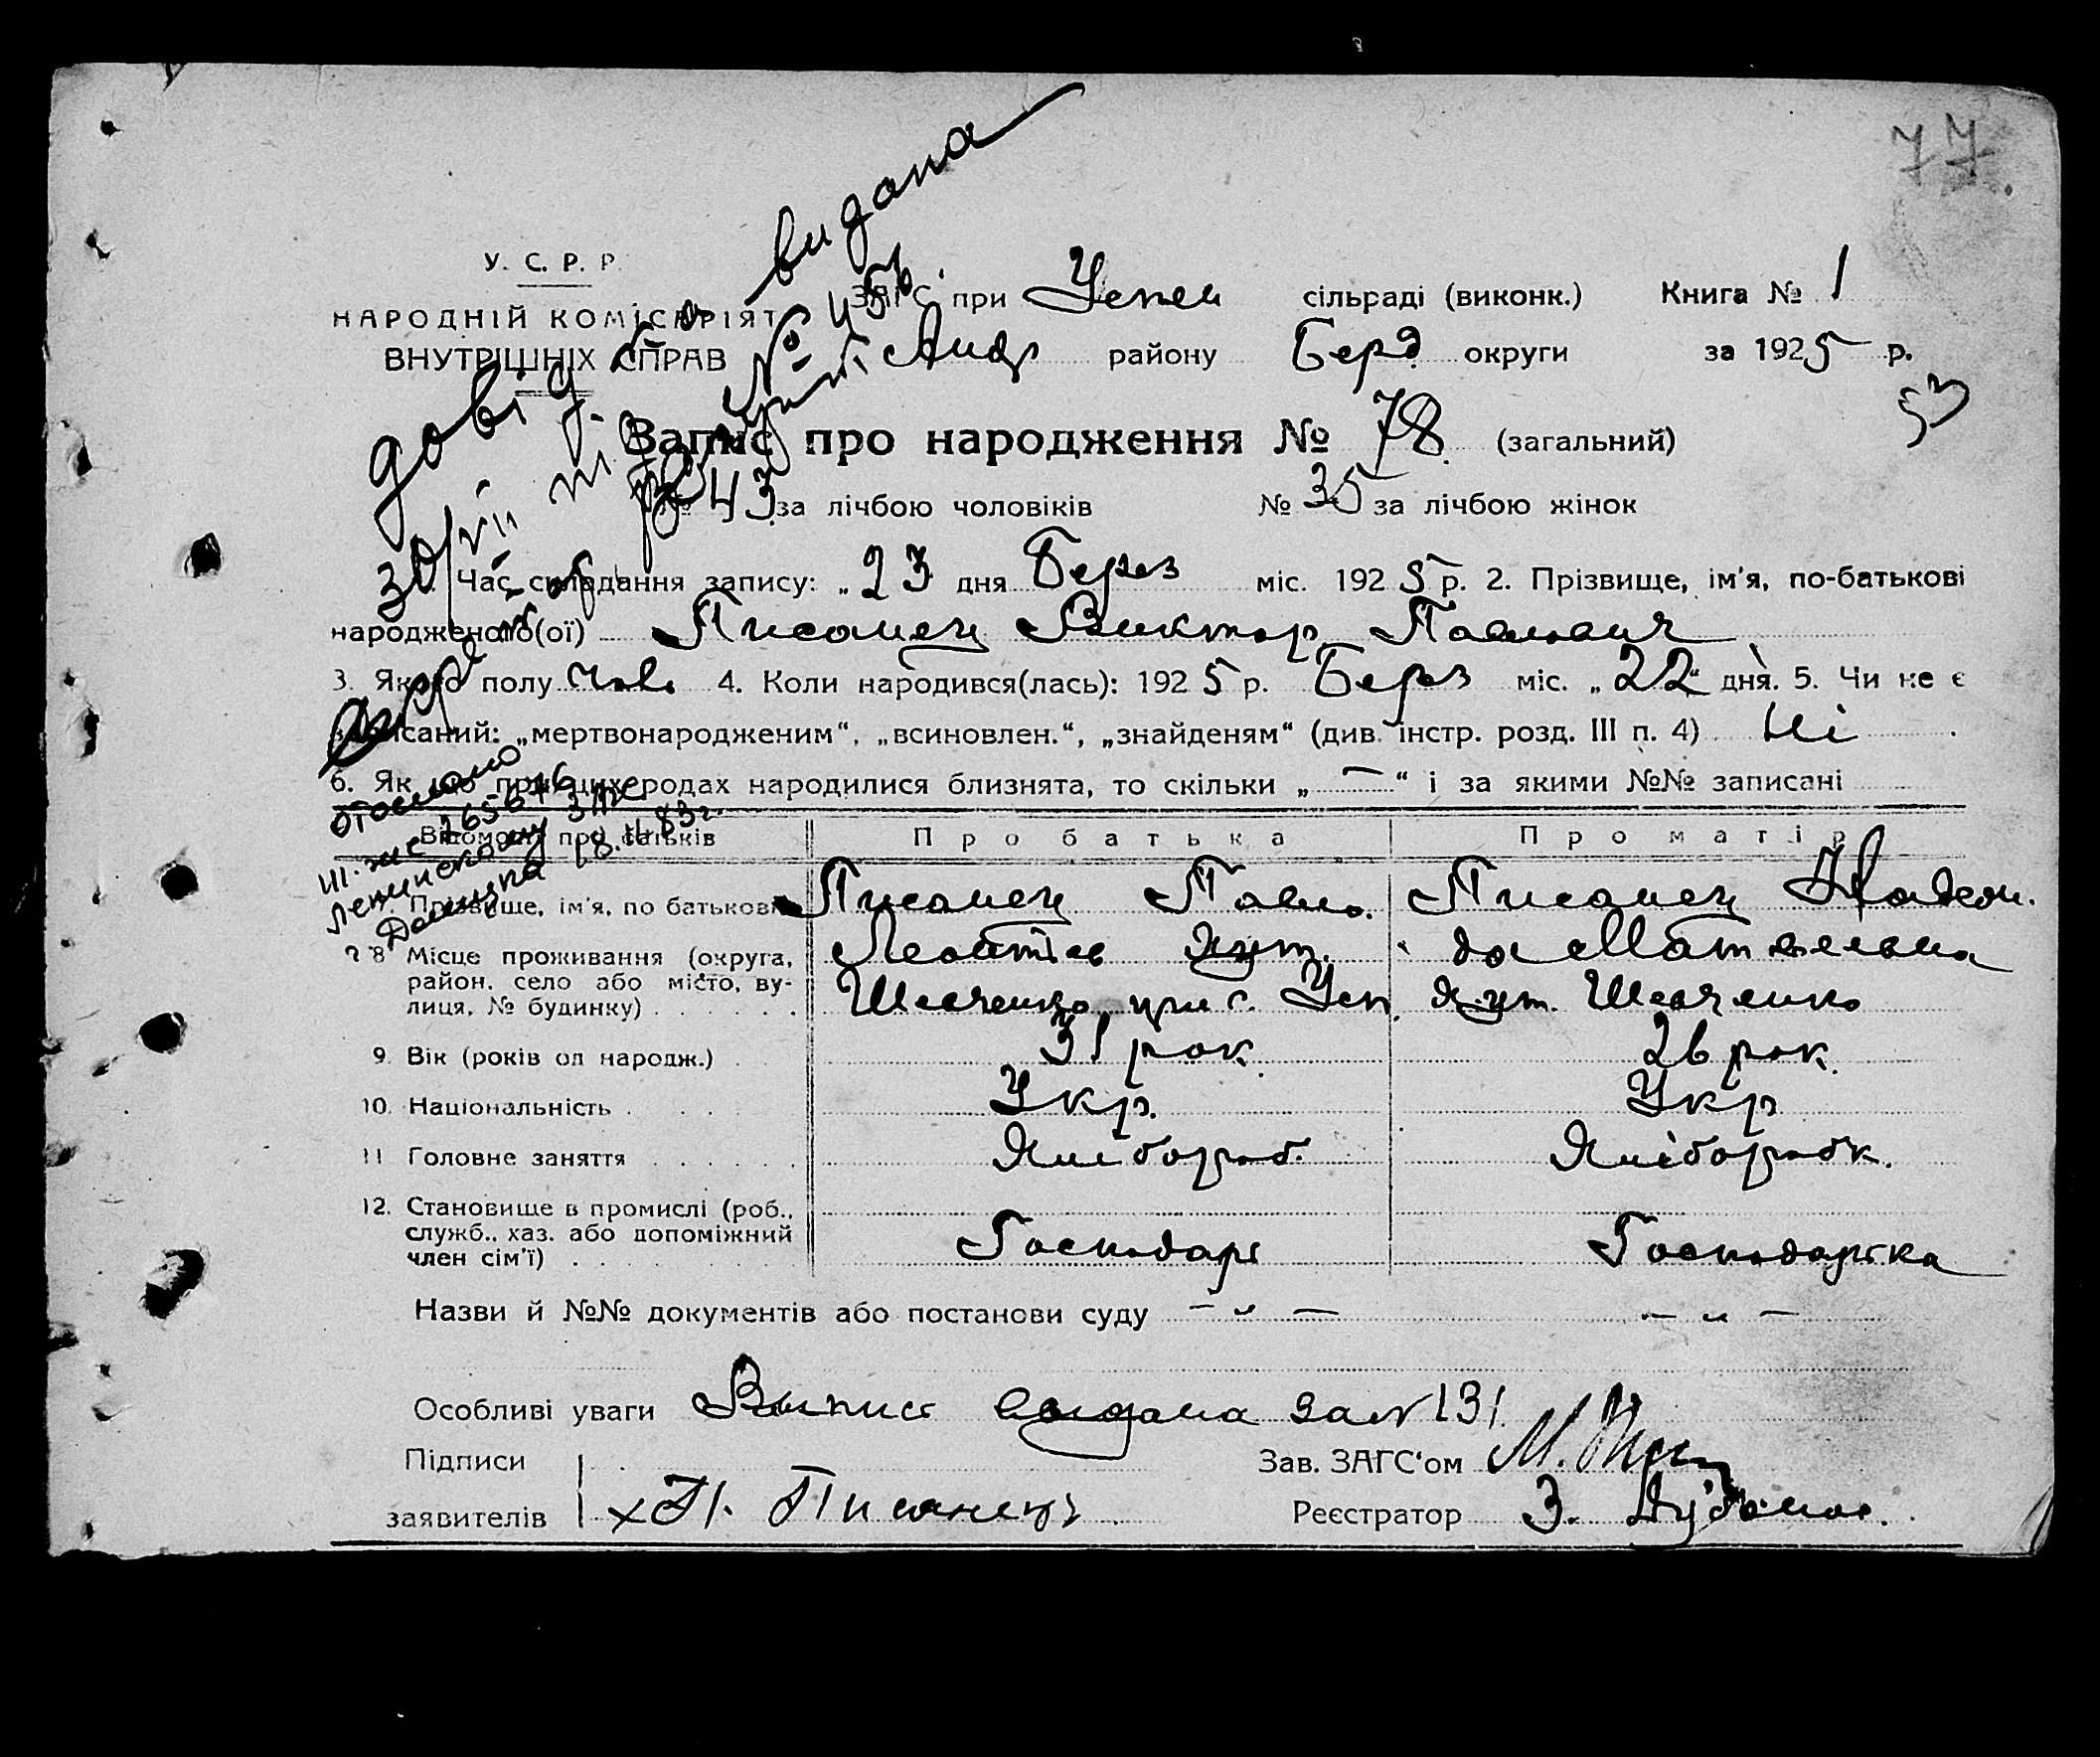 77
У. С. Р. Р.
НАРОДНІЙ КОМІСАРІЯТ
ВНУТРІШНІХ СПРАВ
видана
ЗАГС при Успен сільраді (виконк.) Книга № 1
Андр району Берд округи за 1925 р.
Запис про народження № 78 (загальний)
№ 43 за лічбою чоловіків № 35 за лічбою жінок
Час складання запису: „23 дня Берез міс. 1925 р. 2. Прізвище, ім'я, по-батькові
народженого(ої) Писанец Виктор Павлович
3. Якого полу чов. 4. Коли народився(лась): 1925 р. Берез міс. „22“ дня. 5. Чи не є
записаний: „мертвонародженим“, „всиновлен.“, „знайденям“ (див. інстр. розд. III п. 4) Ні
6. Як що при цих родах народилися близнята, то скільки „—“ і за якими №№ записані
отослано
Відомости про батьків Про батька Про матір
18.11.83г.
7. Прізвище, ім'я, по батькові Писанец Павло. Писанец Надеж.
8. Місце проживання (округа, Леонтіев Хут. да Матвеевна
район, село або місто, ву- Шевченко при с. Усп. Хут. Шевченко
лиця, № будинку)
9. Вік (років од народж.) 31 рок 26 рок.
10. Національність Укр. Укр
11. Головне заняття Хлібороб. Хліборобк.
12. Становище в промислі (роб.,
служб., хаз. або допоміжний Господарь Господарька
член сім'ї)
Назви й №№ документів або постанови суду — „ — — „ —
Особливі уваги Выпись выдана за № 131
Підписи Зав. ЗАГС'ом М.
заявителів х П. Писанецъ Реєстратор З.